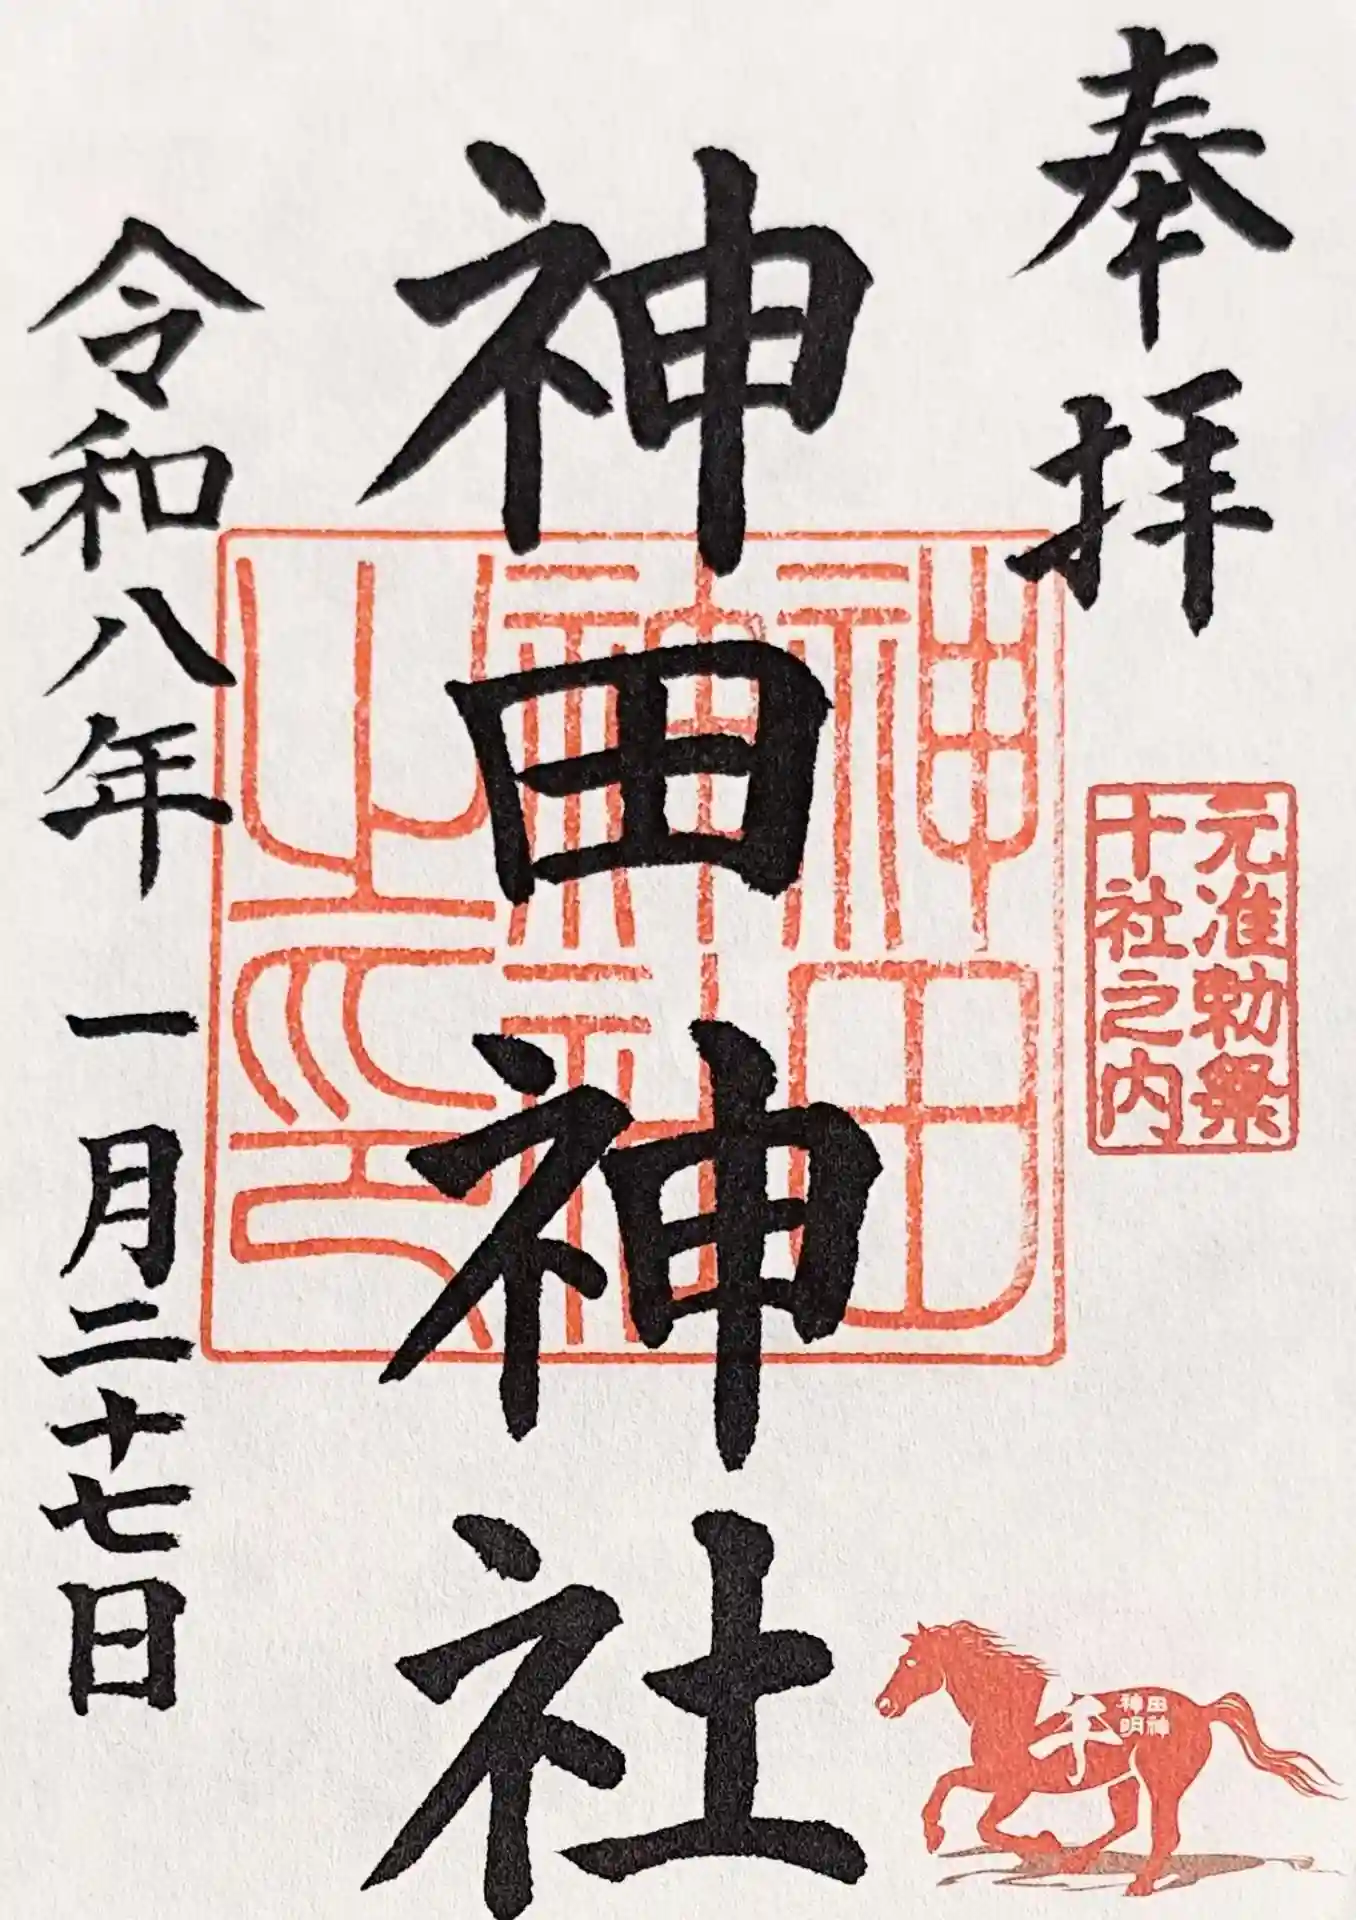 奉拝
元准勅祭
十社之内
神田神社
神田
神社
之印
令和八年一月二十七日
午
神田
明神